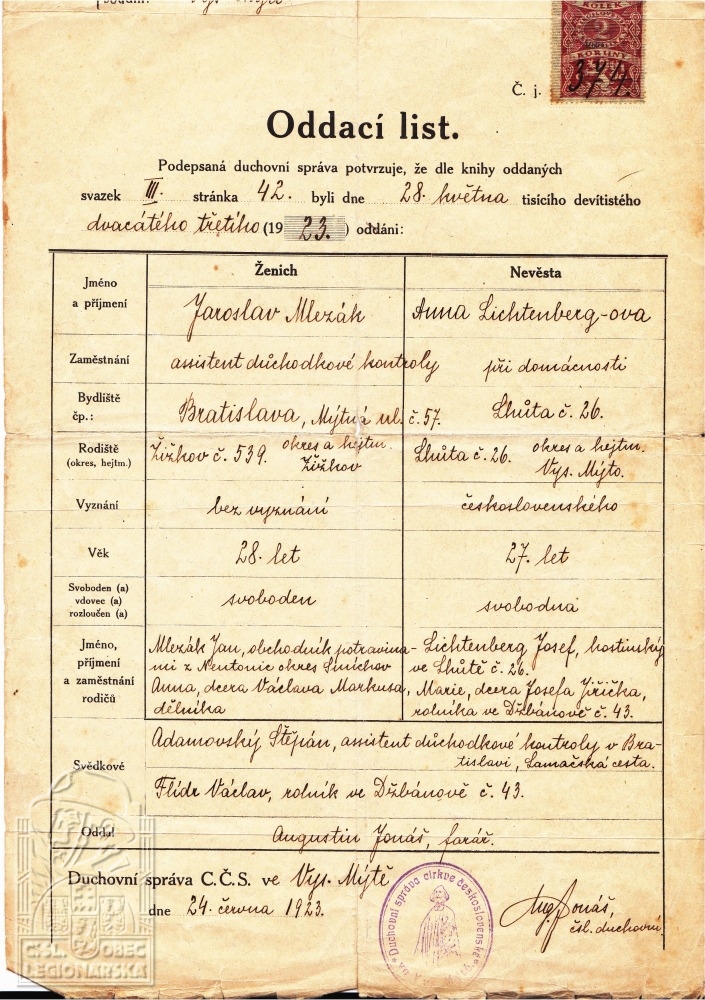 KOLEK
2
KORUNY
Č. j. 374.
Oddací list.
Podepsaná duchovní správa potvrzuje, že dle knihy oddaných
svazek III. stránka 42. byli dne 28. května tisícího devítistého
dvacátého třetího (19 23.) oddáni:
Ženich Nevěsta
Jméno
a příjmení
Jaroslav Mlezák Anna Lichtenberg-ova
Zaměstnání assistent důchodkové kontroly při domácnosti
Bydliště
čp.:
Bratislava, Mýtná ul. č. 57. Lhůta č. 26.
Rodiště
(okres, hejtm.)
Žižkov č. 539. okres a hejtm.
Žižkov
Lhůta č. 26. okres a hejtm.
Vys. Mýto.
Vyznání bez vyznání československého
Věk 28. let 27. let
Svoboden (a)
vdovec (a)
rozloučen (a)
svoboden svobodna
Jméno,
příjmení
a zaměstnání
rodičů
Mlezák Jan, obchodník potravina-
mi z okres Smíchov
Anna, dcera Václava Markusa,
dělníka
Lichtenberg Josef, hostinský
ve Lhůtě č. 26.
Marie, dcera Josefa Jiřička,
rolníka ve Džbánově č. 43.
Svědkové
Adamovský Štěpán, assistent důchodkové kontroly v Bra-
tislavi, Lamačská cesta.
Flídr Václav, rolník ve Džbánově č. 43.
Oddal Augustin Jonáš, farář.
Duchovní správa C.Č.S. ve Vys. Mýtě
dne 24. června 1923.
Duchovní správa církve československé
Aug. Jonáš,
čsl. duchovní
ČSL. OBEC
LEGIONÁŘSKÁ